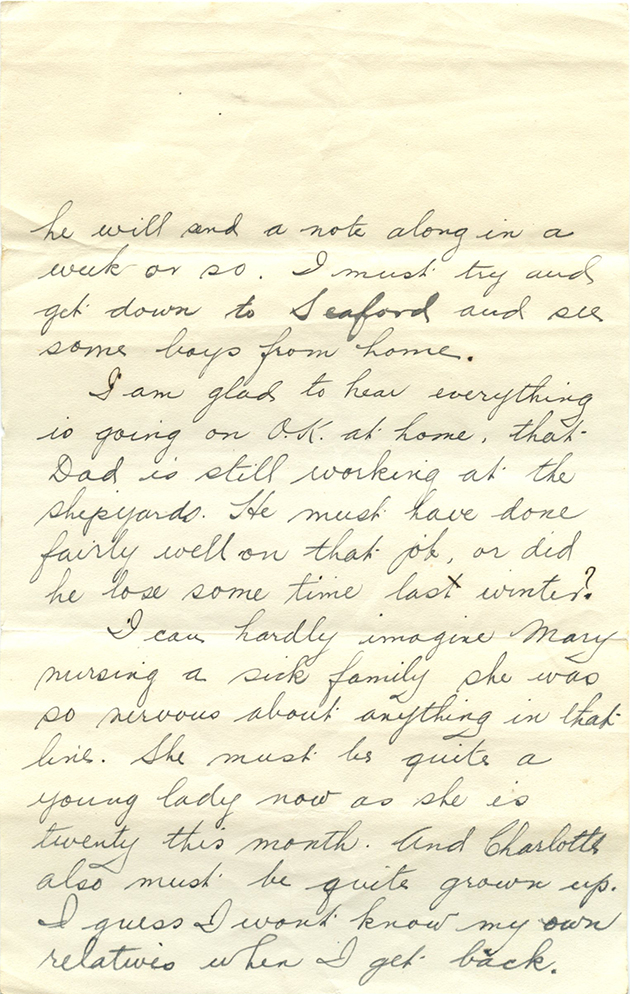 he will send a note along in a
week or so. I must try and
get down to Seaford and see
some boys from home.
I am glad to hear everything
is going on O.K. at home, that
Dad is still working at the
shipyards. He must have done
fairly well on that job, or did
he lose some time last winter?
I can hardly imagine Mary
nursing a sick family she was
so nervous about anything in that
line. She must be quite a
young lady now as she is
twenty this month. And Charlotte
also must be quite grown up.
I guess I wont know my own
relatives when I get back.